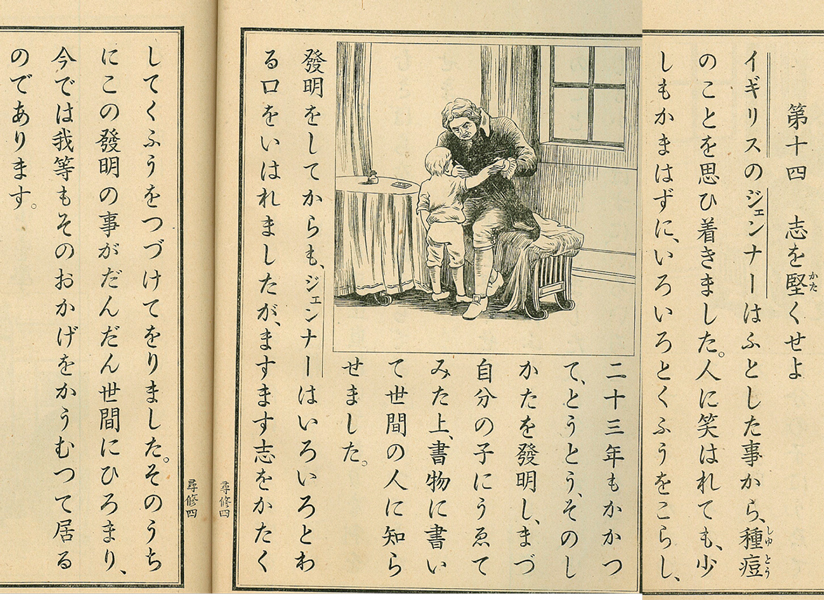 第十四 志を堅くせよ
かた
イギリスのジェンナーはふとした事から、種痘
しゆ とう
のことを思ひ着きました。人に笑はれても、少
しもかまはずに、いろいろとくふうをこらし、
二十三年もかかつ
て、とうとう、そのし
かたを發明し、まづ
自分の子にうゑて
みた上、書物に書い
て世間の人に知ら
せました。
發明をしてからも、ジェンナーはいろいろとわ
る口をいはれましたが、ますます志をかたく
尋修四
尋修四
してくふうをつづけてをりました。そのうち
にこの發明の事がだんだん世間にひろまり、
今では我等もそのおかげをかうむつて居る
のであります。